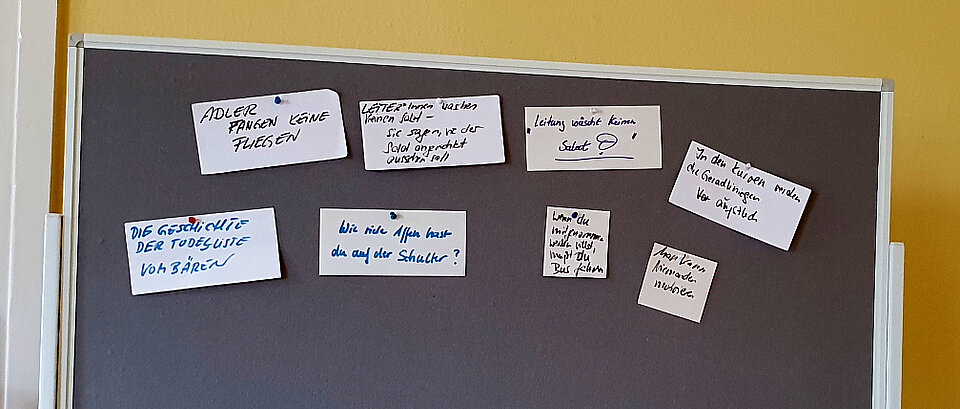 ADLER
FANGEN KEINE
FLIEGEN
LEITER*innen waschen
keinen Salat –
sie sagen, wo der
Salat angerichtet
aussehen soll
"Leitung wäscht keinen
Salat"
In den Kurven werden
die Geradlinigen
vor
DIE GESCHICHTE
DER TODESLISTE
VOM BÄREN
Wie viele Affen hast
du auf der Schulter?
Wenn du
mitgenommen
werden willst,
musst du
Bus fahren
Man kann
niemanden
motivieren